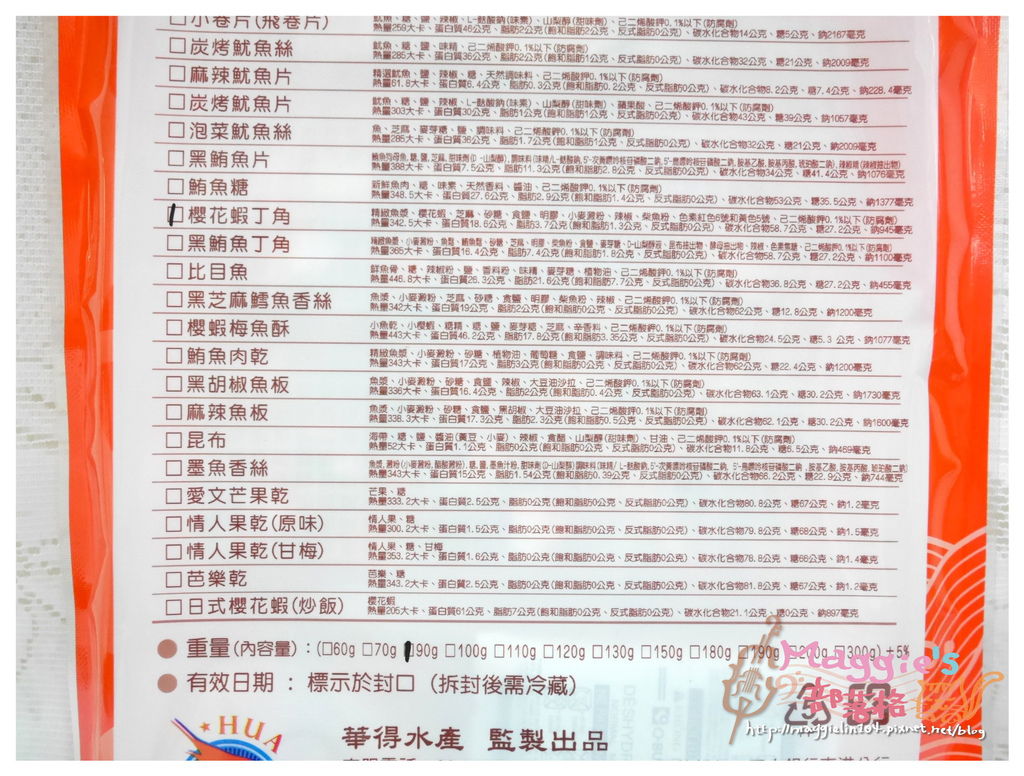 □小卷片(飛卷片)
魷魚、糖、鹽、辣椒、L-麩酸鈉(味素)、山梨醇(甜味劑)、己二烯酸鉀0.1%以下(防腐劑)
熱量259大卡、蛋白質46公克、脂肪2公克(飽和脂肪2公克、反式脂肪0公克)、碳水化合物14公克、糖5公克、鈉2167毫克
□炭烤魷魚絲
魷魚、糖、鹽、味精、己二烯酸鉀0.1%以下(防腐劑)
熱量285大卡、蛋白質36公克、脂肪2公克(飽和脂肪1公克、反式脂肪0公克)、碳水化合物32公克、糖21公克、鈉2009毫克
□麻辣魷魚片
精選魷魚、鹽、辣椒、糖、天然調味料、己二烯酸鉀0.1%以下(防腐劑)
熱量61.8大卡、蛋白質6.4公克、脂肪0.3公克(飽和脂肪0.2公克、反式脂肪0公克)、碳水化合物8.2公克、糖7.4公克、鈉228.4毫克
□炭烤魷魚片
魷魚、糖、鹽、辣椒、L-麩酸鈉(味素)、山梨醇(甜味劑)、蘋果酸、己二烯酸鉀0.1%以下(防腐劑)
熱量303大卡、蛋白質30公克、脂肪1公克(飽和脂肪1公克、反式脂肪0公克)、碳水化合物43公克、糖39公克、鈉1057毫克
□泡菜魷魚絲
魚、芝麻、麥芽糖、鹽、調味料、己二烯酸鉀0.1%以下(防腐劑)
熱量285大卡、蛋白質36公克、脂肪1.7公克(飽和脂肪1公克、反式脂肪0公克)、碳水化合物32公克、糖21公克、鈉2009毫克
□黑鮪魚片
熱量388大卡、蛋白質7.5公克、脂肪11.3公克(飽和脂肪2.8公克、反式脂肪0公克)、碳水化合物34公克、糖41.4公克、鈉1076毫克
□鮪魚糖
新鮮魚肉、糖、味素、天然香料、醬油、己二烯酸鉀0.1%以下(防腐劑)
熱量348.5大卡、蛋白質27.6公克、脂肪2.9公克(飽和脂肪1.4公克、反式脂肪0公克)、碳水化合物53公克、糖35.5公克、鈉1377毫克
□櫻花蝦丁角
精緻魚漿、櫻花蝦、芝麻、砂糖、食鹽、明膠、小麥澱粉、辣椒、柴魚粉、色素紅色6號和黃色5號、己二烯酸鉀0.1%以下(防腐劑)
熱量342.5大卡、蛋白質18.6公克、脂肪3.7公克(飽和脂肪1.3公克、反式脂肪0公克)、碳水化合物58.7公克、糖27.2公克、鈉945毫克
□黑鮪魚丁角
熱量365大卡、蛋白質16.4公克、脂肪7.4公克(飽和脂肪1.8公克、反式脂肪0公克)、碳水化合物58.7公克、糖27.2公克、鈉1100毫克
□比目魚
鮮魚骨、糖、辣椒粉、鹽、香料粉、味精、麥芽糖、植物油、己二烯酸鉀0.1%以下(防腐劑)
熱量446.8大卡、蛋白質26.3公克、脂肪21.6公克(飽和脂肪7.7公克、反式脂肪0公克)、碳水化合物36.8公克、糖27.2公克、鈉455毫克
□黑芝麻鱈魚香絲
魚漿、小麥澱粉、芝麻、砂糖、食鹽、明膠、柴魚粉、辣椒、己二烯酸鉀0.1%以下(防腐劑)
熱量342大卡、蛋白質19公克、脂肪2公克(飽和脂肪0公克、反式脂肪0公克)、碳水化合物62公克、糖12.8公克、鈉1200毫克
□櫻蝦梅魚酥
小魚乾、小櫻蝦、糖精、糖、鹽、麥芽糖、芝麻、辛香料、己二烯酸鉀0.1%以下(防腐劑)
熱量443大卡、蛋白質46.2公克、脂肪17.8公克(飽和脂肪3.35公克、反式脂肪0公克)、碳水化合物24.5公克、糖5.3 公克、鈉1077毫克
□鮪魚肉乾
精緻魚漿、小麥澱粉、砂糖、植物油、葡萄糖、食鹽、調味料、己二烯酸鉀0.1%以下(防腐劑)
熱量343大卡、蛋白質17公克、脂肪3公克(飽和脂肪0.5公克、反式脂肪0公克)、碳水化合物62公克、糖22.4公克、鈉1200毫克
□黑胡椒魚板
魚漿、小麥澱粉、砂糖、食鹽、辣椒、大豆油沙拉、己二烯酸鉀0.1%以下(防腐劑)
熱量336大卡、蛋白質16.4公克、脂肪2公克(飽和脂肪0.4公克、反式脂肪0公克)、碳水化合物63.1公克、糖30.2公克、鈉1730毫克
□麻辣魚板
魚漿、小麥澱粉、砂糖、食鹽、黑胡椒、大豆油沙拉、己二烯酸鉀0.1%以下(防腐劑)
熱量338.3大卡、蛋白質17.3公克、脂肪2.3公克(飽和脂肪0.5公克、反式脂肪0公克)、碳水化合物62.1公克、糖30.2公克、鈉1600毫克
□昆布
海帶、糖、鹽、醬油(黃豆、小麥)、辣椒、食醋、山梨醇(甜味劑)、甘油、己二烯酸鉀0.1%以下(防腐劑)
熱量52大卡、蛋白質1.1公克、脂肪0公克(飽和脂肪0公克、反式脂肪0公克)、碳水化合物11.8公克、糖6.5公克、鈉469毫克
□墨魚香絲
熱量343大卡、蛋白質15公克、脂肪1.54公克(飽和脂肪0.39公克、反式脂肪0公克)、碳水化合物66.2公克、糖22.9公克、鈉744毫克
□愛文芒果乾
芒果、糖
熱量333.2大卡、蛋白質2.5公克、脂肪0公克(飽和脂肪0公克、反式脂肪0公克)、碳水化合物80.8公克、糖67公克、鈉1.2毫克
□情人果乾(原味)
情人果、糖
熱量300.2大卡、蛋白質1.5公克、脂肪0公克(飽和脂肪0公克、反式脂肪0公克)、碳水化合物79.8公克、糖68公克、鈉1.5毫克
□情人果乾(甘梅)
情人果、糖、甘梅
熱量353.2大卡、蛋白質1.6公克、脂肪0公克(飽和脂肪0公克、反式脂肪0公克)、碳水化合物78.8公克、糖66公克、鈉1.4毫克
□芭樂乾
芭樂、糖
熱量343.2大卡、蛋白質2.5公克、脂肪0公克(飽和脂肪0公克、反式脂肪0公克)、碳水化合物81.8公克、糖67公克、鈉1.2毫克
□日式櫻花蝦(炒飯)
櫻花蝦
熱量205大卡、蛋白質61公克、脂肪7公克(飽和脂肪0公克、反式脂肪0公克)、碳水化合物21.1公克、糖0公克、鈉897毫克
●重量(內容量):(□60g □70g □90g □100g □110g □120g □130g □150g □180g □190g □210g □300g)±5%
●有效日期：標示於封口 (拆封後需冷藏)
★HUA
華得水產 監製出品
Maggie's
部落格
http://maggielin204.pixnet.net/blog